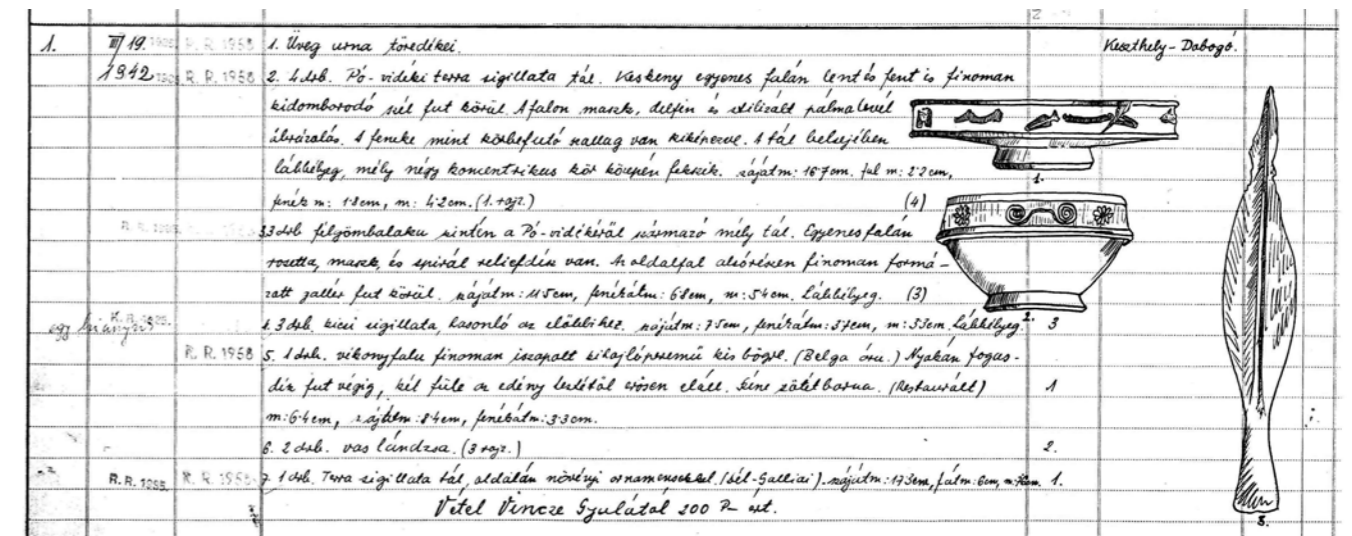 1. III/19. R. R. 1958 1. Üveg urna töredékei. Keszthely-Dobogó.
1942 R. R. 1958 2. 4 drb. Pó-vidéki terra sigillata tál. Keskeny egyenes falán lent és fent is finoman
kidomborodó szél fut körül. A falon maszk, delfin és stilizált pálmalevél
ábrázolás. A feneke mint körbefutó szallag van kiképezve. A tál belsejében
lábbélyeg, mély négy koncentrikus kör közepén fekszik. szájátm: 16·7cm. fal m: 2·2cm,
fenék m: 1·8cm, m: 4·2cm. (1. rajz.) (4)
1.
R. R. 1955. 3. 3 drb félgömbalaku szintén a Pó-vidékéről származó mély tál. Egyenes falán
rosetta, maszk, és spirál reliefdísz van. Az oldalfal alsó részen finoman formá-
zott gallér fut körül. szájátm: 11·5cm, fenékátm: 6·8cm, m: 5·4cm. Lábbélyeg. (3)
2.
egy hiányzik R. R. 1955. 4. 3 drb. kicsi sigillata, hasonló az előbbihez. szájátm: 7·5cm, fenékátm: 3·7cm, m: 3·3cm. Lábbélyeg. 3
R. R. 1958 5. 1 drb. vékonyfalu finoman iszapolt kihajlóperemű kis bögre. (Belga áru.) Nyakán fogas-
dísz fut végig, két füle az edény testétől erősen eláll. Színe sötétbarna. (Restaurált) 1
m: 6·4cm, szájátm: 8·4cm, fenékátm: 3·3cm.
6. 2 drb. vas lándzsa. (3 rajz.) 2.
R. R. 1955. R. R. 1958 7. 1 drb. Terra sigillata tál, oldalán növényi ornamensekkel. (dél-Galliai). szájátm: 17·3cm, f.átm: 6cm, 1.
Vétel Vincze Gyulától 200 P– ért.
3.